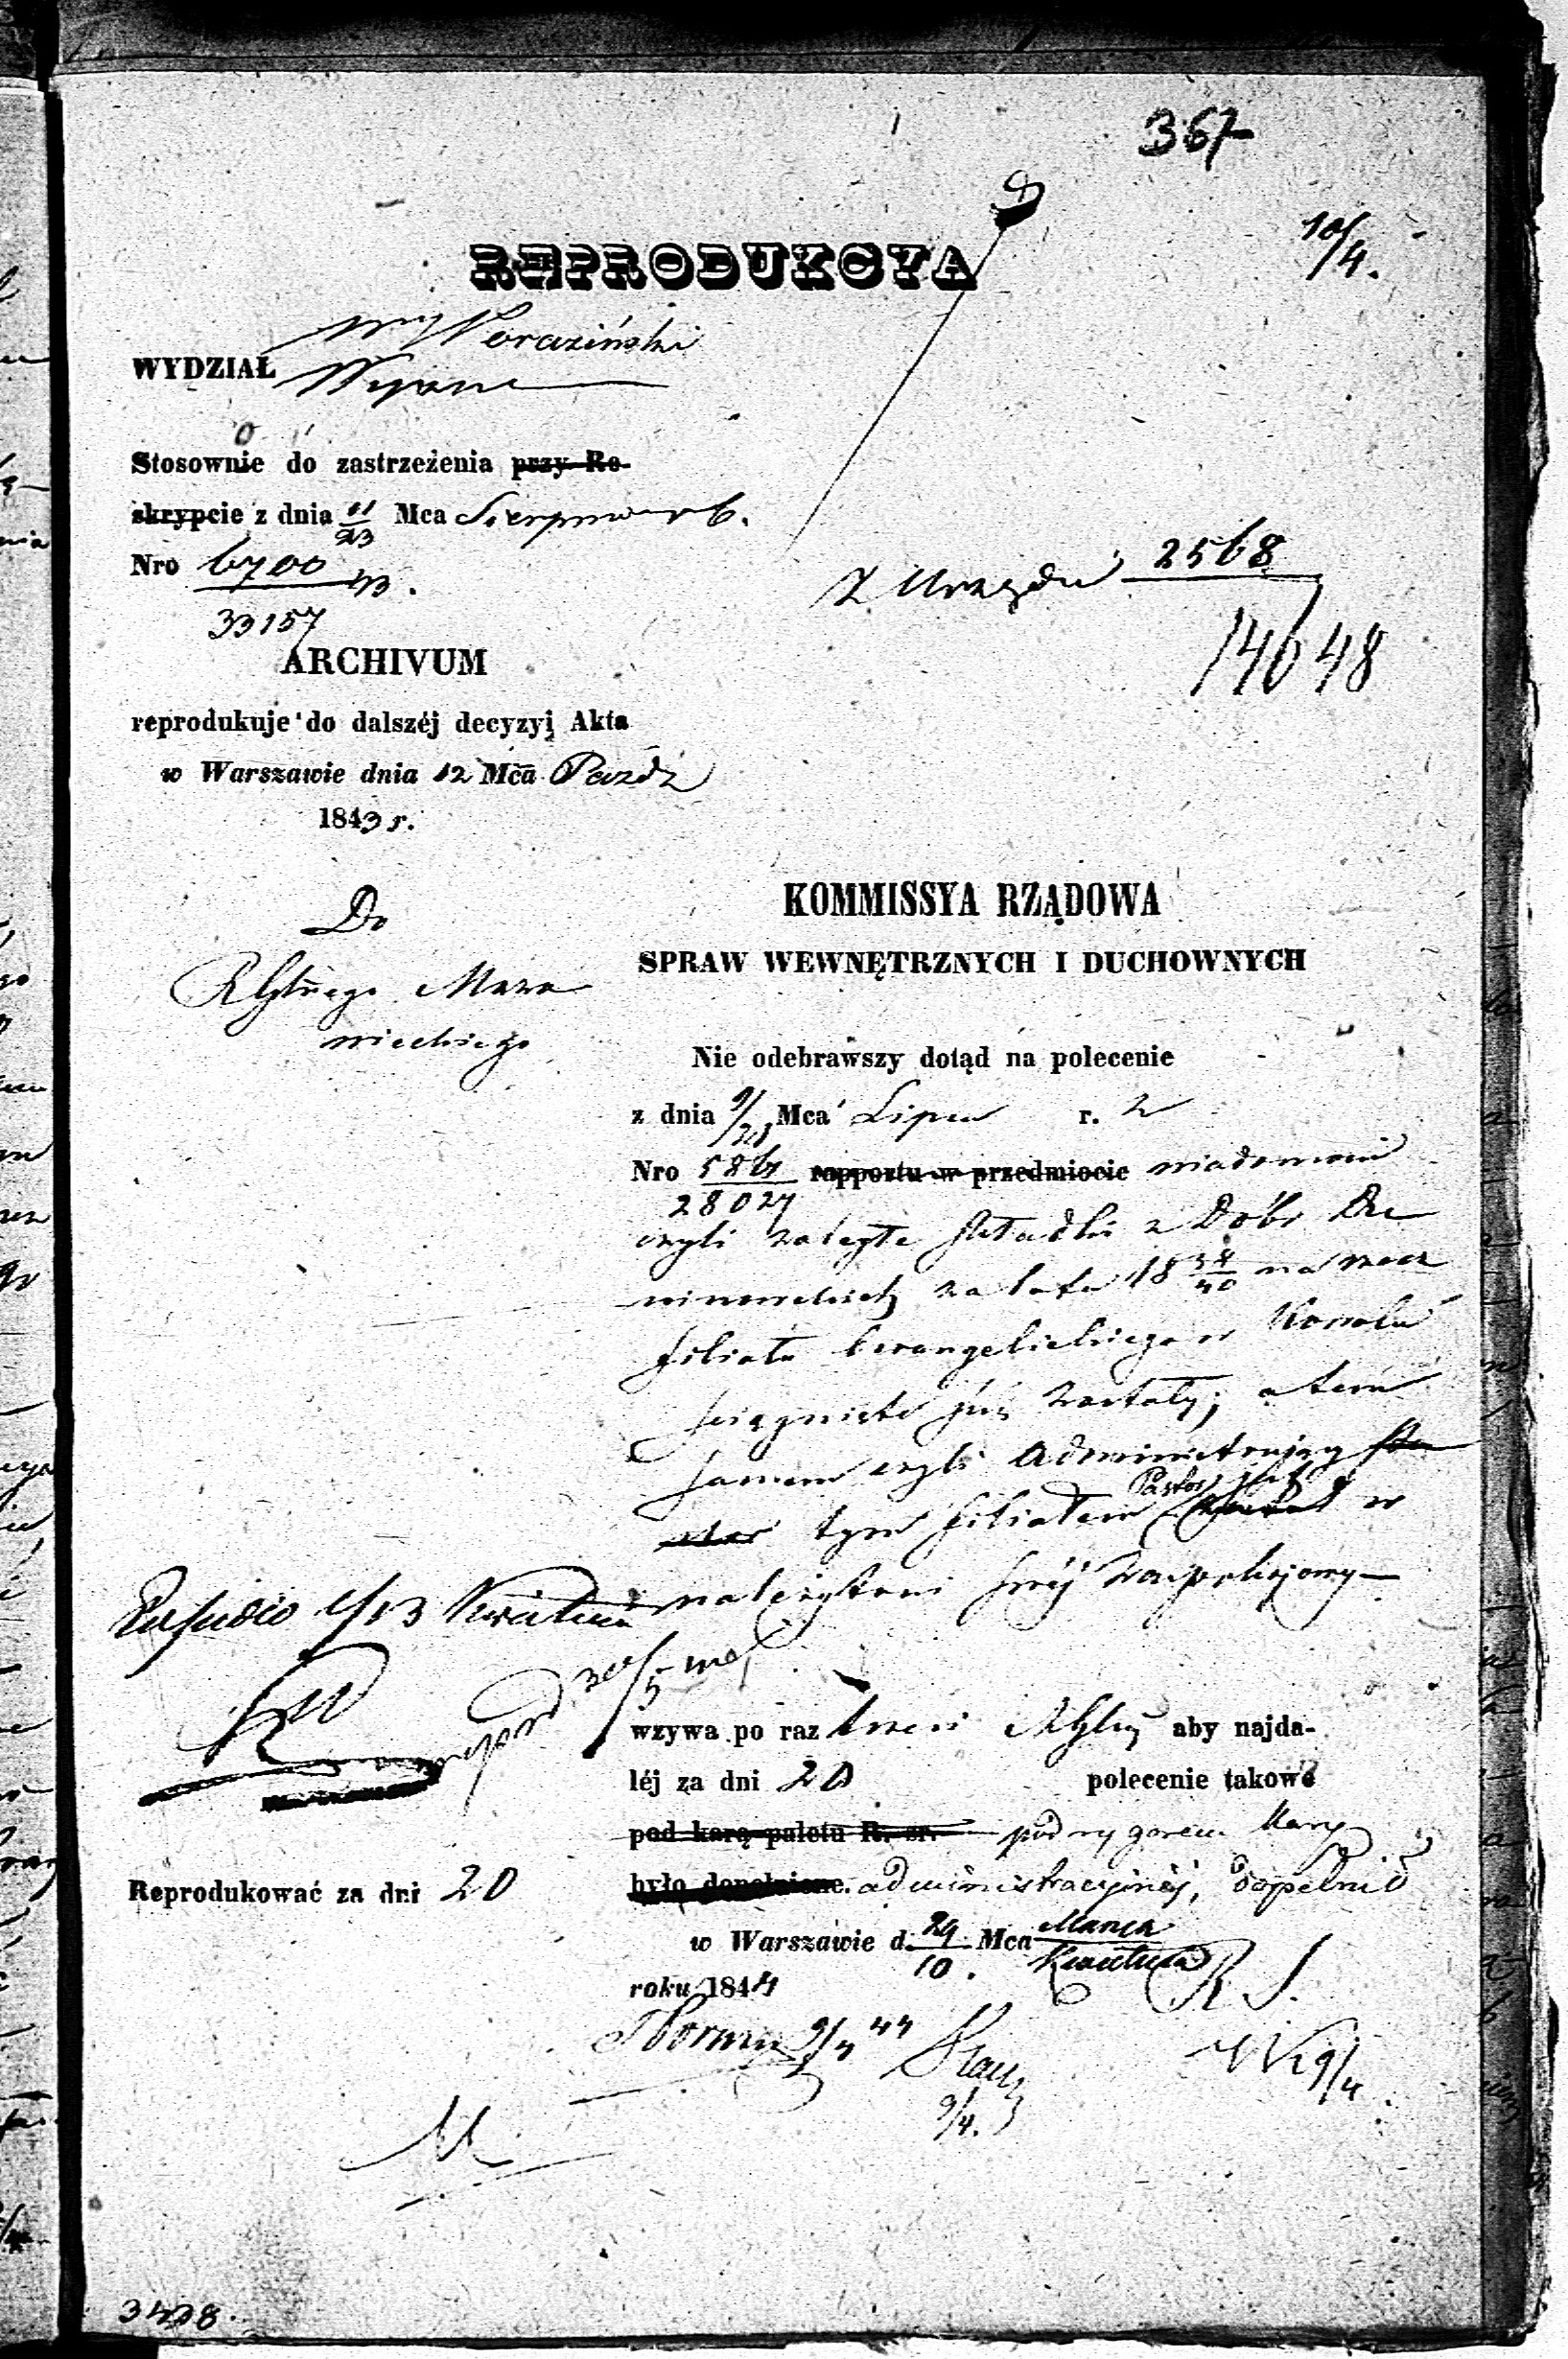 367
10/4.
REPRODUKCYA
WYDZIAŁ
Stosownie do zastrzeżenia przy Re-
skrypcie z dnia 11/23 Mca Sierpnia r b.
Nro 6700/33157 43.
Z Urzędu 2568/14648
ARCHIVUM
reprodukuje do dalszéj decyzyi Akta
w Warszawie dnia 12 Mca Paźdz
1843 r.
Do
RGłnego Mazo
wieckiego
KOMMISSYA RZĄDOWA
SPRAW WEWNĘTRZNYCH I DUCHOWNYCH
Nie odebrawszy dotąd na polecenie
z dnia 9/21 Mca Lipca r. z
Nro 5867/28027 rapportu w przedmiocie wiadomości
czyli zaległe składki z Dóbr
za lata 1834/40 na rzecz
filiału Ewangelickiego w Kowalu
ściągnięte już zostały; a tem
samem czyli Administrujący
tym filiałem Pastor jest w
należytości swéj zaspokojony
Kwietnia
wzywa po raz trzeci RGłny aby najda-
léj za dni 20 polecenie takowe
pod karą paletu R. sr. pod rygorem Kary
było dopełnione. administracyjnéj, dopełnił
Reprodukować za dni 20
w Warszawie d. 29/10. Mca Marca/Kwietnia
roku 1844
9/4 44
9/4.
9/4
3428.